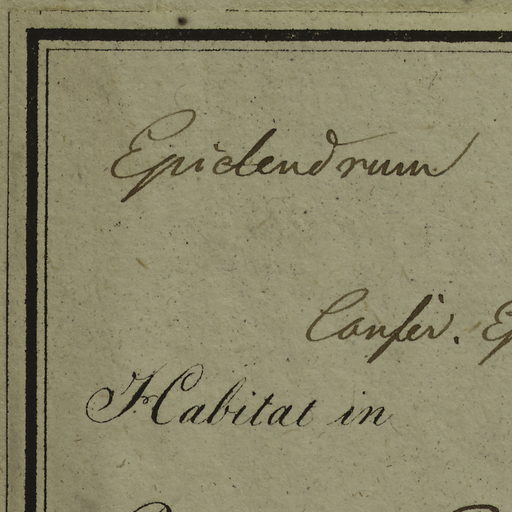 Epidendrum
Confer. Ep
Habitat in